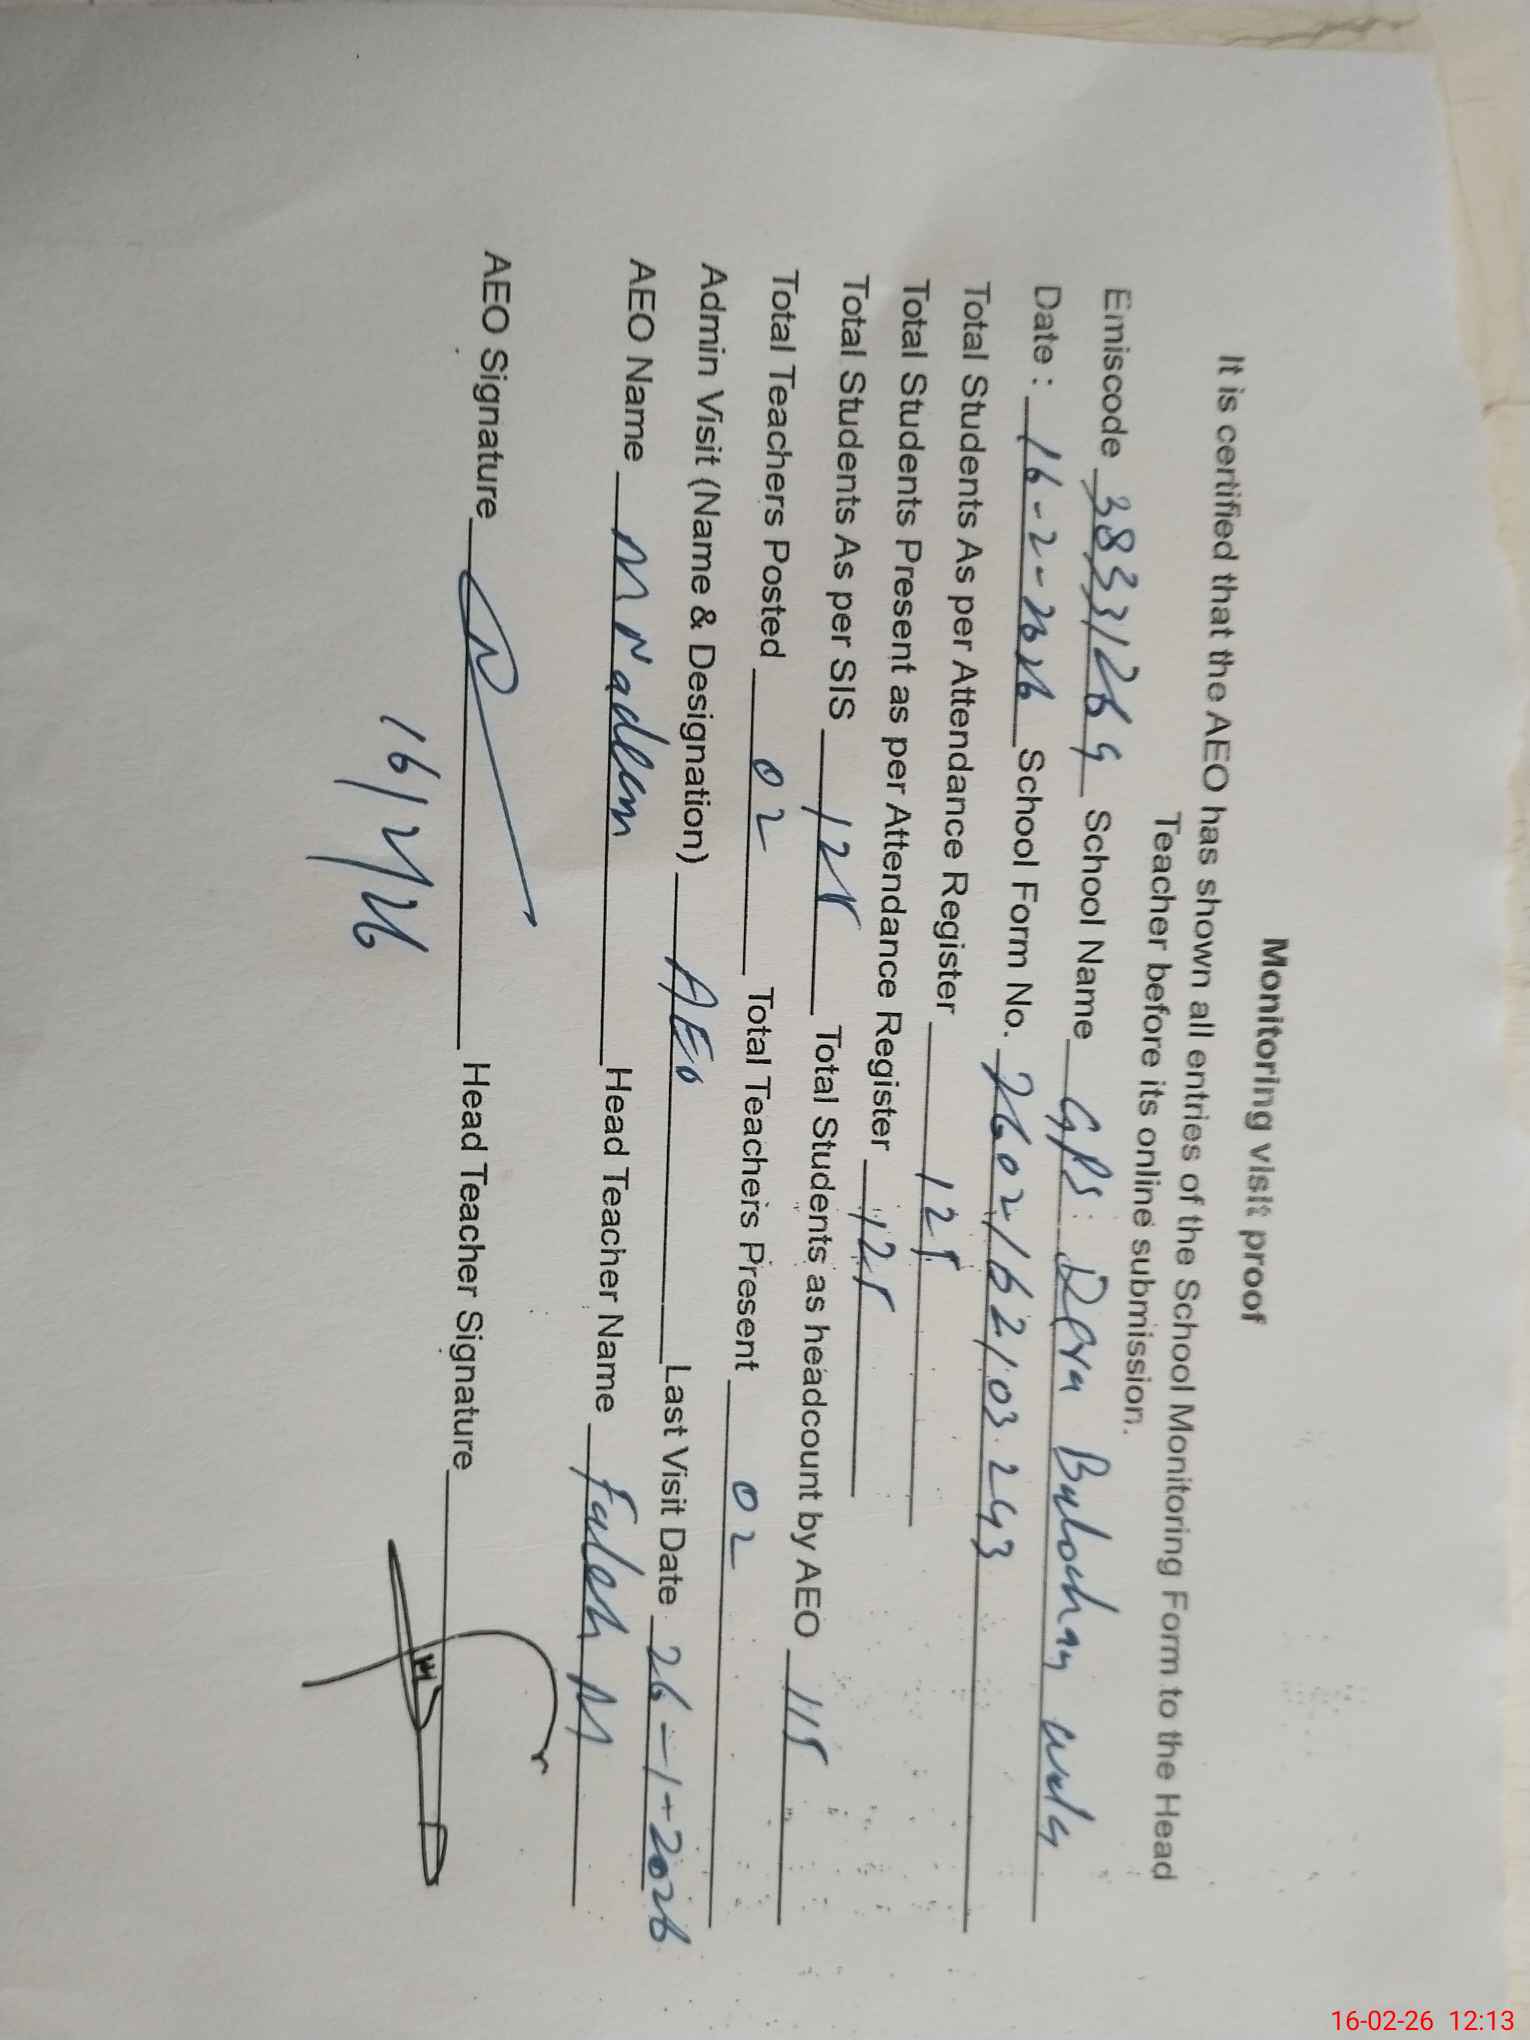 Monitoring visit proof
It is certified that the AEO has shown all entries of the School Monitoring Form to the Head
Teacher before its online submission.
Emiscode 38331269 School Name GPS: Dera Balochan wala
Date : 16-2-2026 School Form No. 2602162103243
Total Students As per Attendance Register
Total Students Present as per Attendance Register
Total Students As per SIS Total Students as headcount by AEO
Total Teachers Posted 02 Total Teachers Present 02
Admin Visit (Name & Designation) AEO Last Visit Date 26-1-2026
AEO Name M Nadeem Head Teacher Name M
AEO Signature Head Teacher Signature
16/2/26
16-02-26 12:13